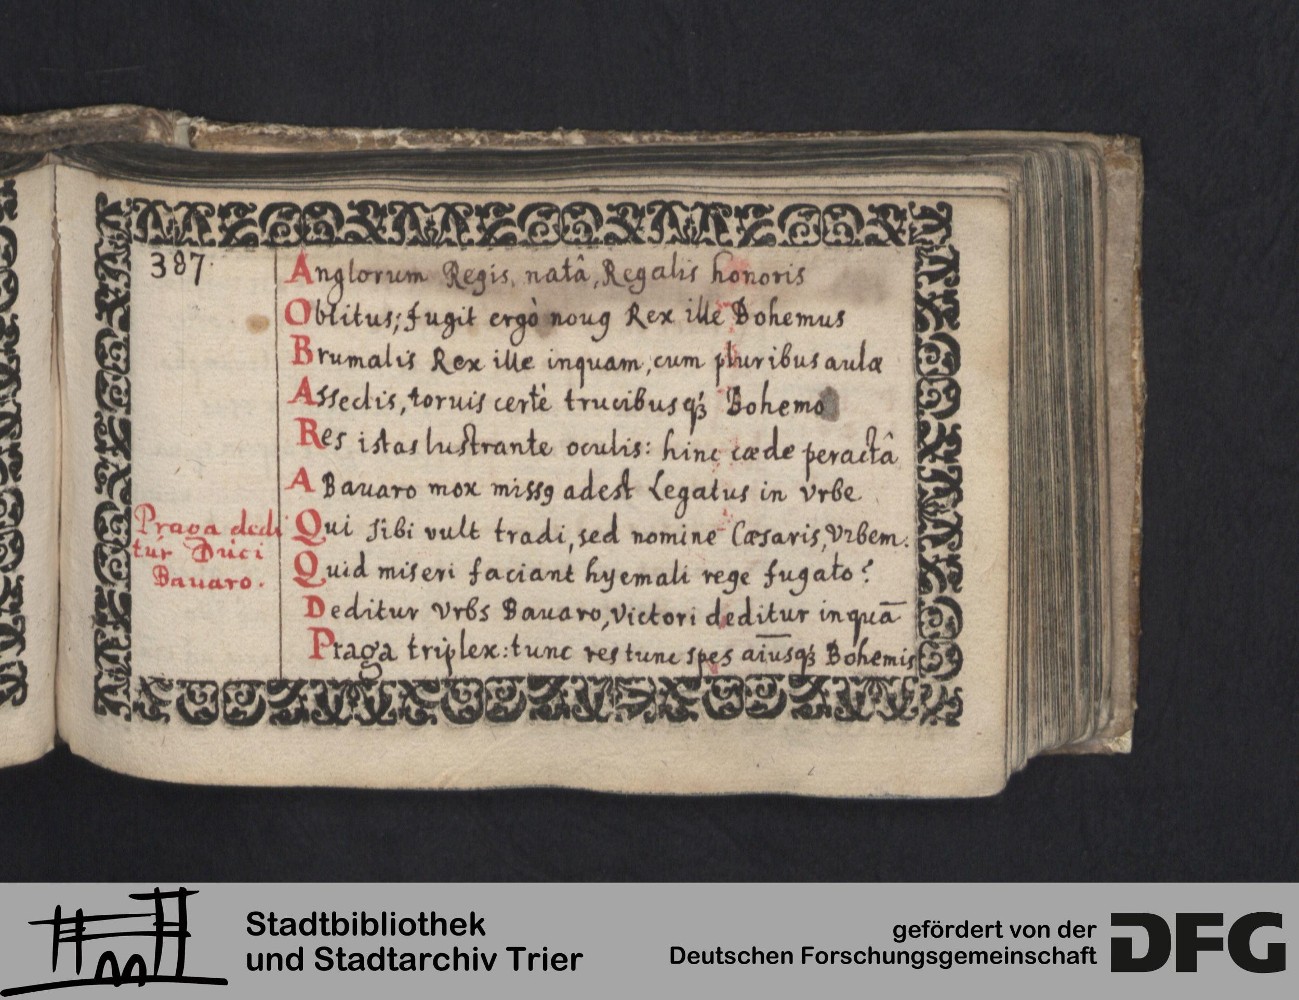 387.
Anglorum Regis, natâ, Regalis honoris
Oblitus; fugit ergò nouꝯ Rex ille Bohemus
Brumalis Rex ille inquam, cum pluribus aulæ
Asseclis, toruis certè trucibusqꝫ Bohemo
Res istas lustrante oculis: hinc cæde peractâ
A Bauaro mox missꝯ adest Legatus in vrbe
Qui sibi vult tradi, sed nomine Cæsaris, Vrbem.
Quid miseri faciant hyemali rege fugato?
Deditur vrbs Bavaro, victori deditur inquā
Praga triplex: tunc res tunc spes aīusqꝫ Bohemis
Praga dedi
tur Duci
Bauaro.
Stadtbibliothek
und Stadtarchiv Trier
gefördert von der
Deutschen Forschungsgemeinschaft
DFG